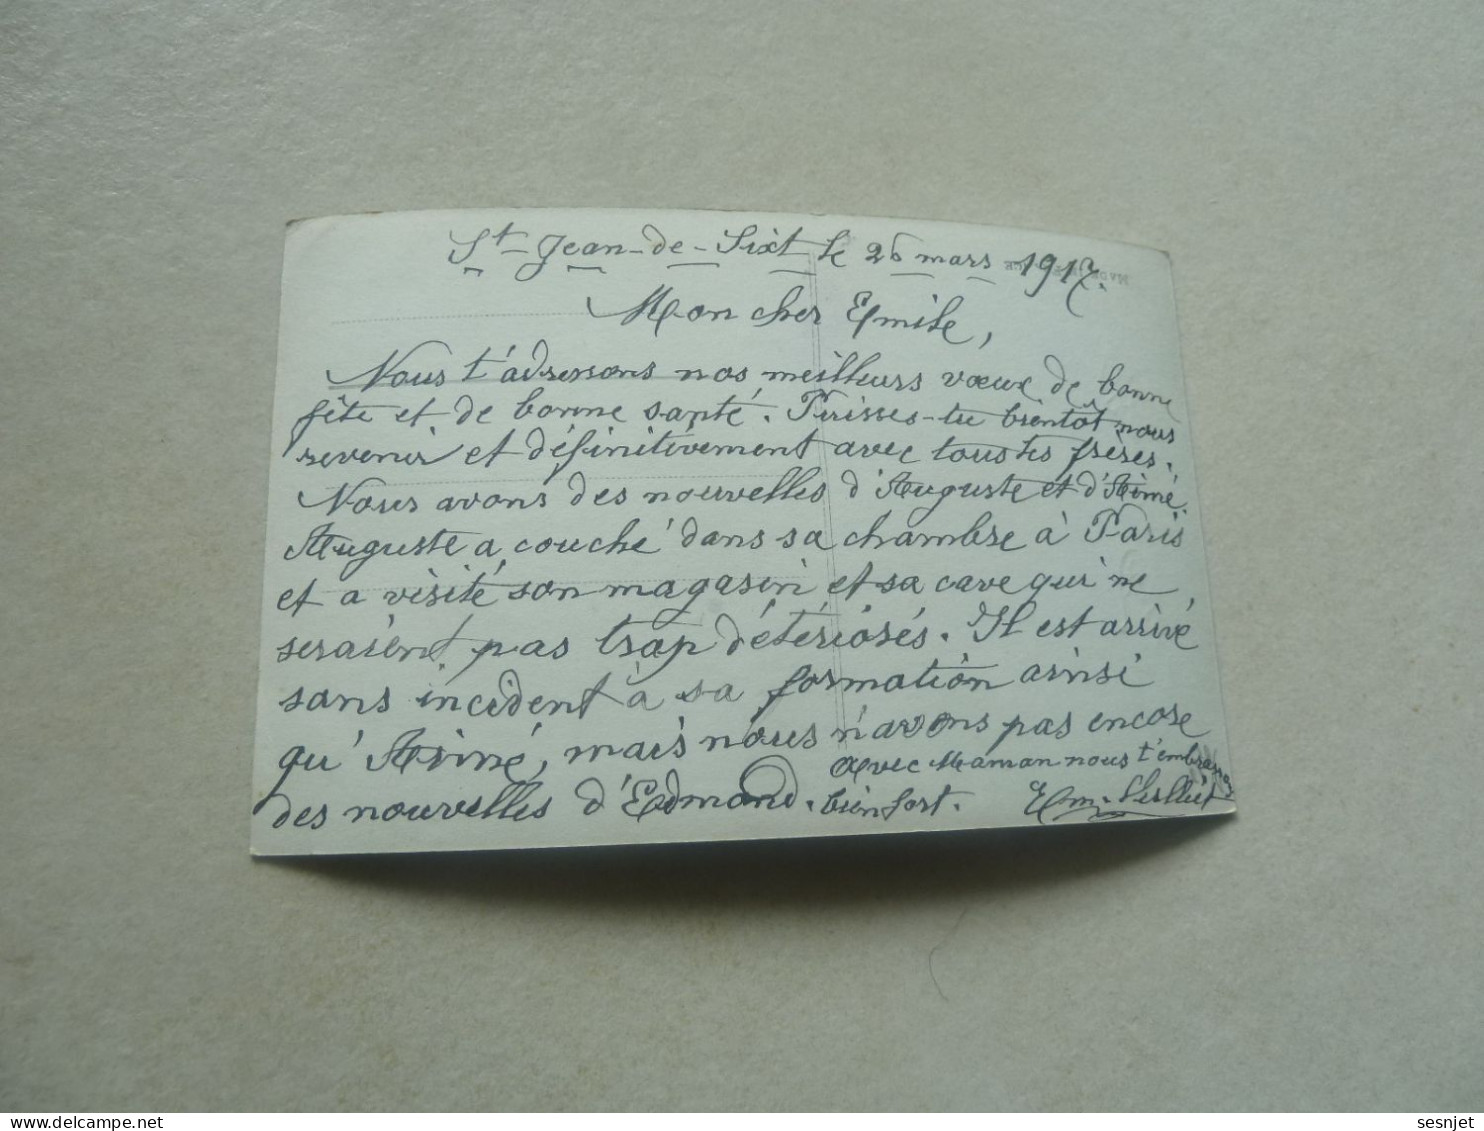 St-Jean-de-Sixt le 26 mars 1917.
Mon cher Emile,
Nous t'adressons nos meilleurs vœux de bonne
fête et de bonne santé. Puisses-tu bientôt nous
revenir et définitivement avec tous tes frères.
Nous avons des nouvelles d'Auguste et d'Aimé.
Auguste a couché dans sa chambre à Paris
et a visité son magasin et sa cave qui ne
seraient pas trop détériorés. Il est arrivé
sans incident à sa formation ainsi
qu'Aimé, mais nous n'avons pas encore
des nouvelles d'Edmond.
avec Maman nous t'embrassons
bien fort. Em.
sesnjet